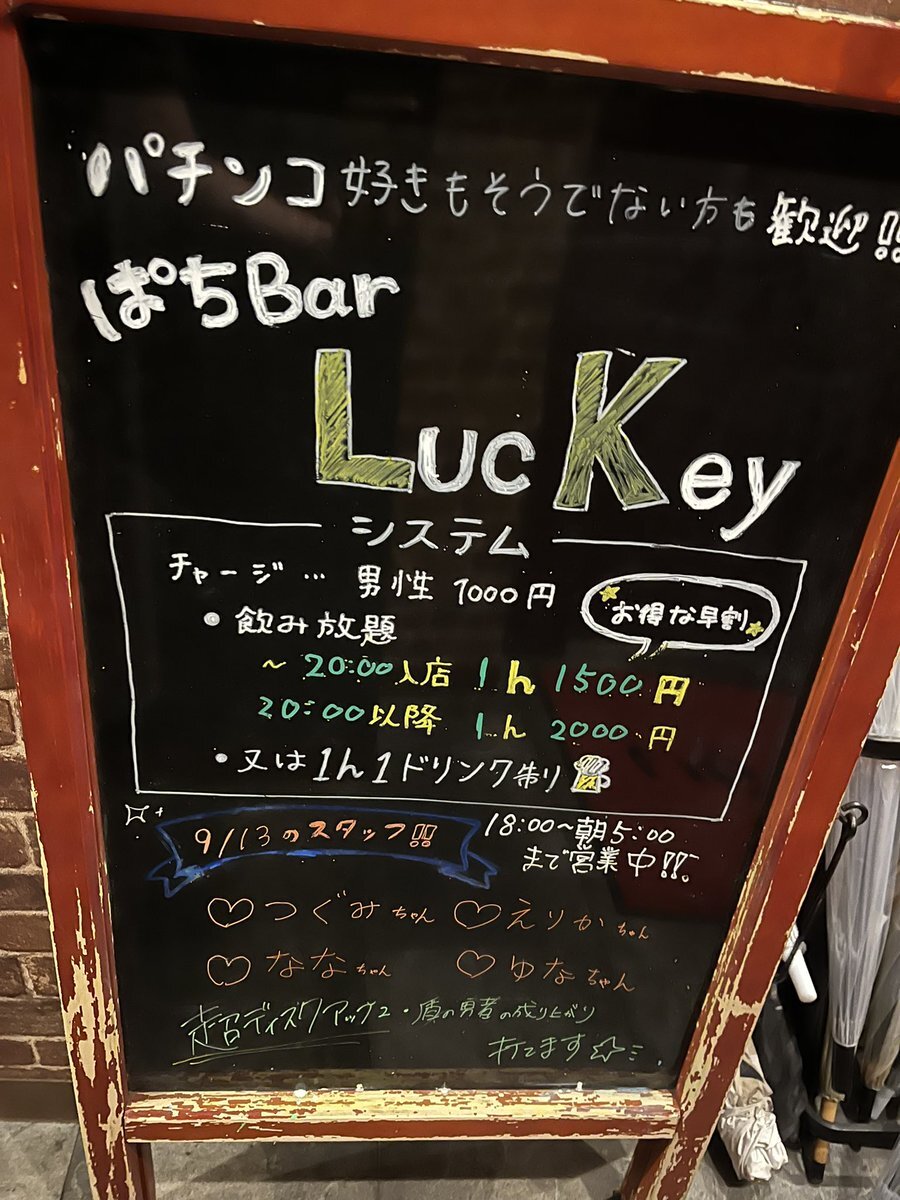 パチンコ好きもそうでない方も歓迎!!
ぱちBar
LucKey
システム
チャージ… 男性 1000円
お得な早割
・飲み放題
~20:00入店 1h 1500円
20:00以降 1h 2000円
・又は1h1ドリンク制
9/13のスタッフ!!
18:00~朝5:00
まで営業中!!
♡つぐみちゃん ♡えりかちゃん
♡ななちゃん ♡ゆなちゃん
超ディスクアップ2・盾の勇者の成り上がり
打てます☆